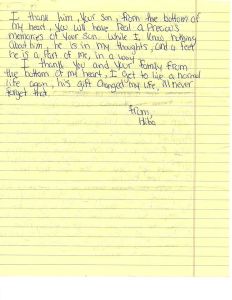 I thank him, Your son, from the bottom of
my heart, You will have Real a Precious
memories of Your Son. While I know nothing
about him, he is in my thoughts, and I feel
he is a part of me, in a way.
I thank You and Your family from
the bottom of my heart, I get to live a normal
life again, his gift changed my life, ill never
forget that.
From,
Hiba